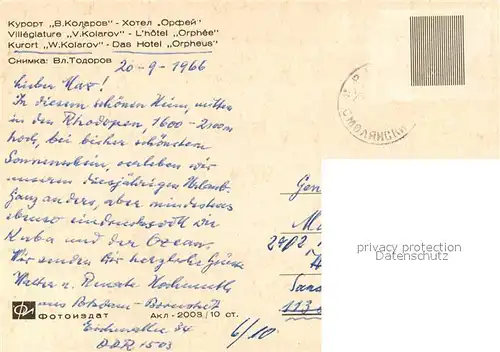 Курорт „В.Коларов" - Хотел „Орфей"
Villégiature „V.Kolarov" - L'hôtel „Orphée"
Kurort „W.Kolarov" - Das Hotel „Orpheus"
Снимка: Вл.Тодоров
20-9-1966
Lieber Max!
In diesem schönen Heim, mitten
in den Rhodopen, 1600-2000m
hoch, bei bisher schönstem
Sonnenschein, verleben wir
unseren diesjährigen Urlaub.
Ganz anders, aber mindestens
ebenso eindrucksvoll wie
Kuba und der Ozean.
Wir senden Dir herzliche Grüße
Walter u. Renate
aus Potsdam-Bornstedt
84
DDR 1503
6/10
СМОЛЯНСКИ
Gen
2402
113
privacy protection
Datenschutz
Фотоиздат Акл-2003/10 ст.